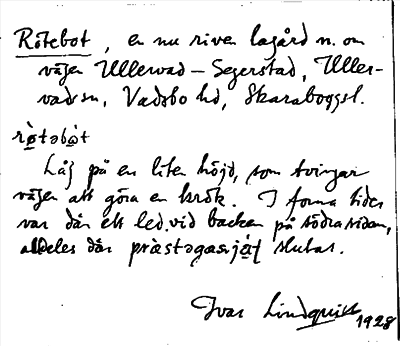 Rötebot, en nu riven lagård n. om
vägen Ullervad – Segerstad, Uller-
vads sn, Vadsbo hd, Skarabogsl.
rø̀təbø̀t
Låg på en liten höjd, som tvingar
vägen att göra en krök. I forna tider
var där ett led vid backen på södra sidan,
alldeles där slutar.
Ivar Lindquist
1928